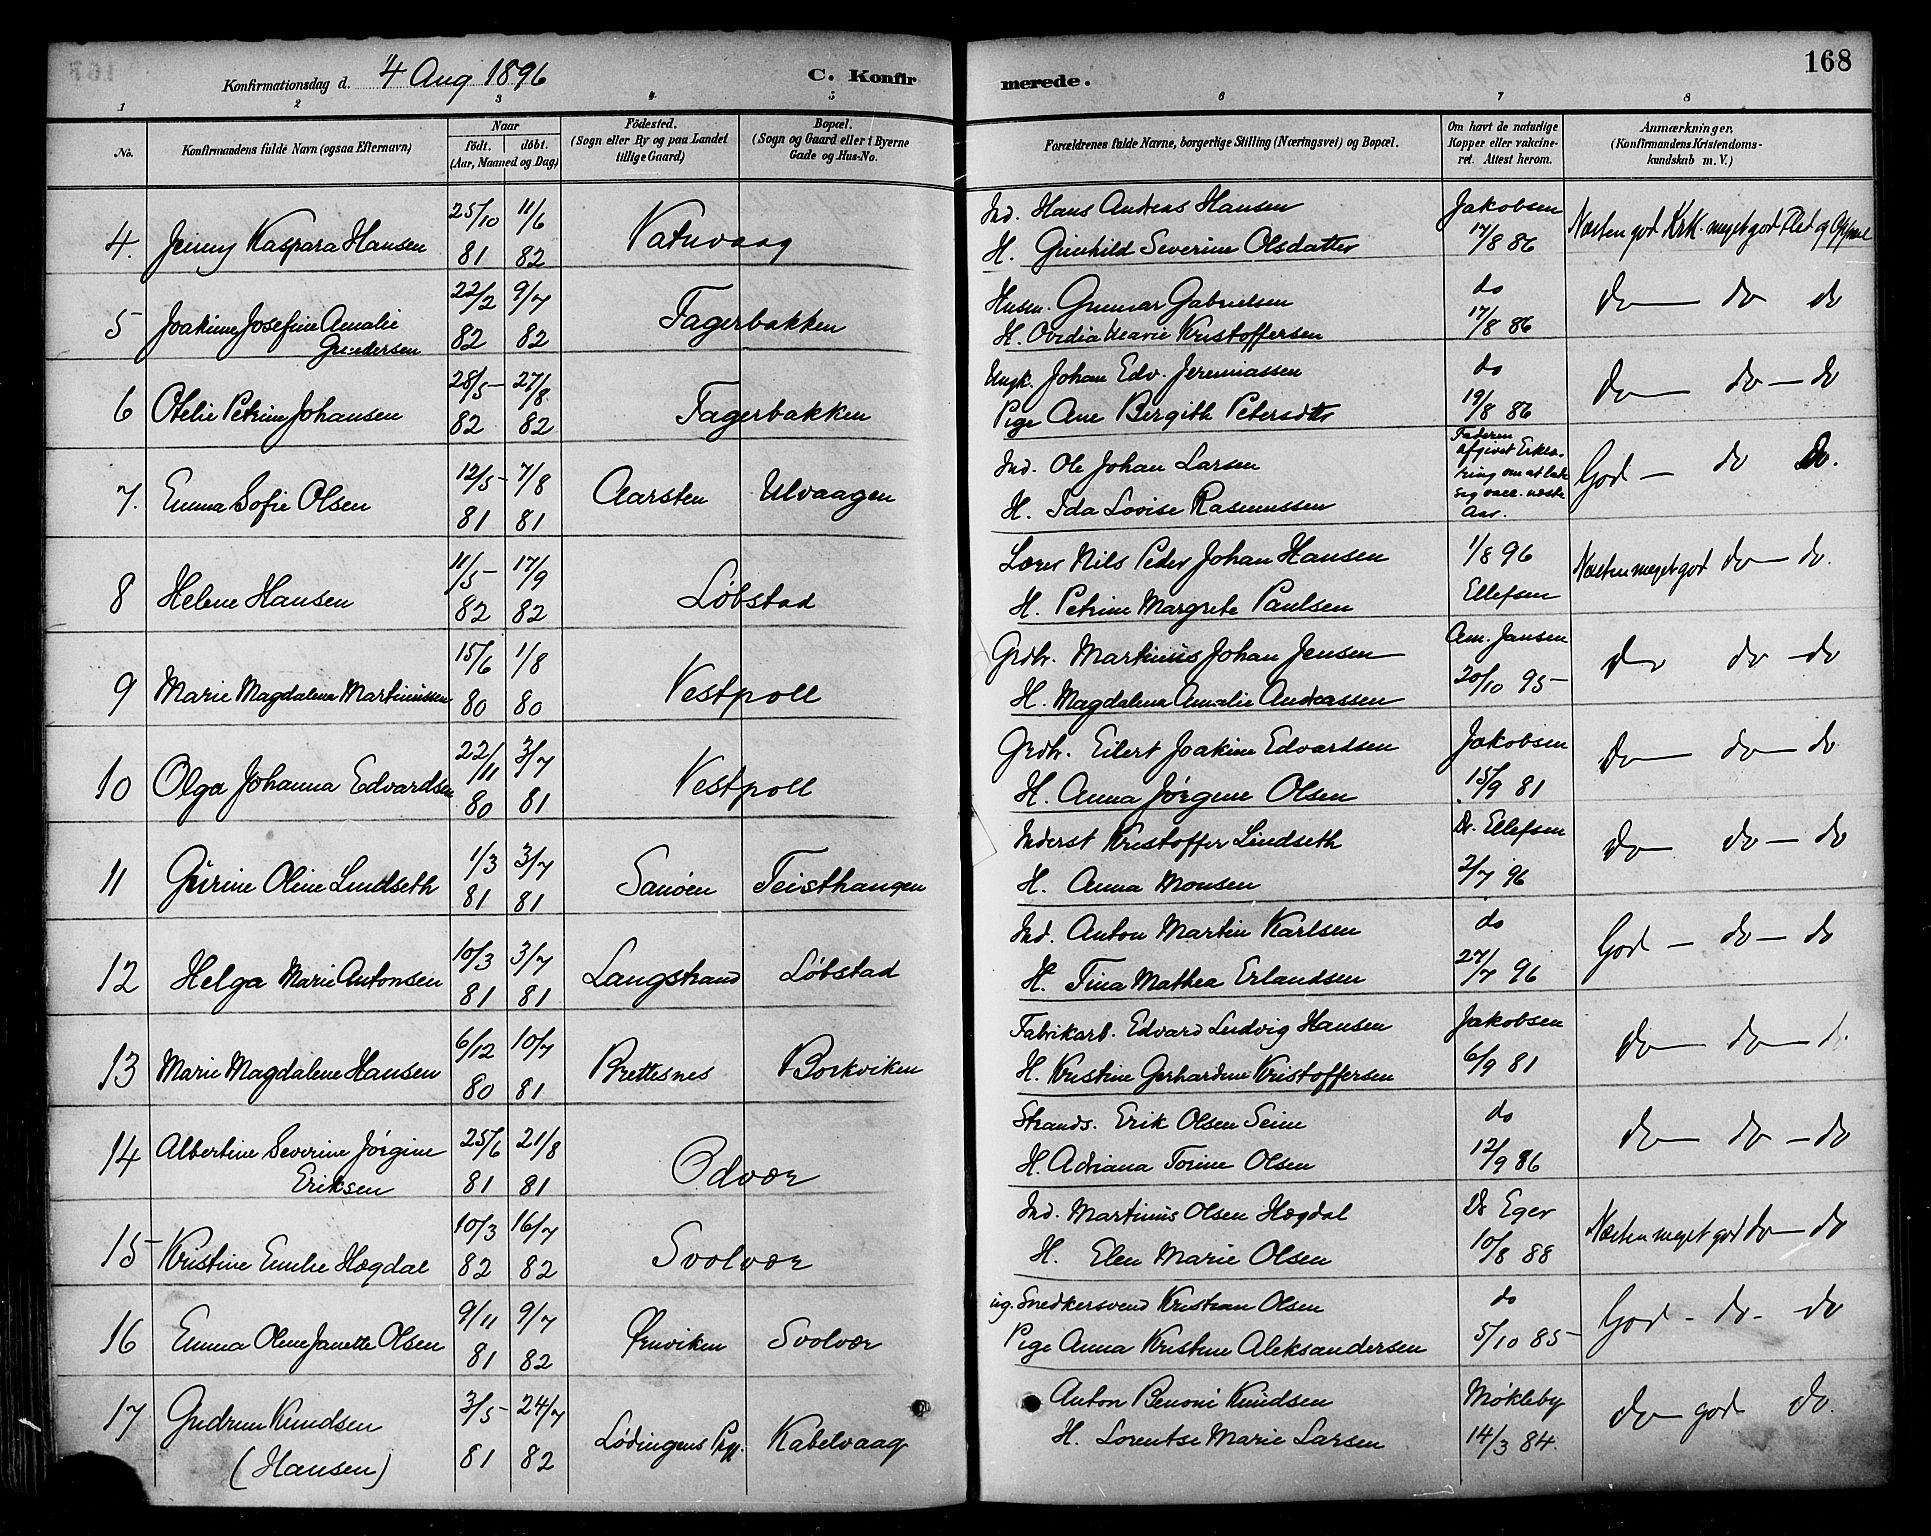 168
Konfirmationsdag d. 4 Aug 1896
C. Konfirmerede.
1 2 3 4 5 6 7 8
No.
Konfirmandens fulde Navn (ogsaa Efternavn)
Naar
født. døbt.
(Aar, Maaned og Dag)
Fødested.
(Sogn eller By og paa Landet
tillige Gaard)
Bopæl.
(Sogn og Gaard eller i Byerne
Gade og Hus-No.
Forældrenes fulde Navne, borgerlige Stilling (Næringsvei) og Bopæl.
Om havt de naturlige
Kopper eller vakcine-
ret. Attest herom.
Anmærkninger.
(Konfirmandens Kristendoms-
kundskab m. V.)
4. Jenny Kaspara Hansen 25/10 81 11/6 82 Vatnvaag
Ind. Hans Andreas Hansen
H. Gunhild Severine Olsdatter
Jakobsen 17/8 86
Næsten god Krk. meget god Flid og
5 Joakime Josefine Amalie
Gundersen 22/2 82 9/7 82 Fagerbakken
Husm. Gunnar Gabrielsen
H. Ovidia Marie Kristoffersen
do 17/8 86
do do do
6 Otelie Petrine Johansen 28/5 82 27/8 82 Fagerbakken
Ungk. Johan Edv. Jeremiassen
Pige Ane Bergith Petersdtr
do 19/8 86
do do do
7. Emma Sofie Olsen 12/5 81 7/8 81 Aarsten Ulvaagen
Ind. Ole Johan Larsen
H. Ida Lovise Rasmussen
Faderen
afgivet Erklæ-
ring om at lade
sig vacc. næste
Aar.
God do do.
8 Helene Hansen 11/5 82 17/9 82 Løbstad
Lærer Nils Peder Johan Hansen
H. Petrine Margrete Paulsen
1/8 96
Ellefsen
Næsten meget god do do.
9 Marie Magdalena Martinussen 15/6 80 1/8 80 Vestpoll
Grdbr. Martinus Johan Jensen
H. Magdalena Amalie Andreassen
Am. Jansen
20/10 95
do do do
10 Olga Johanna Edvardsen 22/11 80 3/7 81 Vestpoll
Grdbr. Eilert Joakim Edvardsen
H. Anna Jørgine Olsen
Jakobsen
15/9 81
do do do
11 Gurine Oline Lindseth 1/3 81 3/7 81 Sanøen Teisthaugen
Inderst Kristoffer Lindseth
H. Anna Monsen
Dr. Ellefsen
2/7 96
do do do
12 Helga Marie Antonsen 10/3 81 3/7 81 Langstrand Løbstad
Ind. Anton Martin Karlsen
H. Tina Mathea Erlandsen
do
27/7 96
God do do
13 Marie Magdalene Hansen 6/12 80 10/7 81 Brettesnes Borkviken
Fabrikarb. Edvard Ludvig Hansen
H. Kristine Gerhardine Kristoffersen
Jakobsen
6/9 81
do do d.
14 Albertine Severine Jørgine
Eriksen 25/6 81 21/8 81 Odvær
Strands. Erik Olsen Seine
H. Adriana Torine Olsen
do
12/9 86
do do do
15 Kristine Emilie Hægdal 10/3 82 16/7 82 Svolvær
Ind. Martinus Olsen Hægdal
H. Elen Marie Olsen
Dr Eger
10/8 88
Næsten meget god do do
16 Emma Oline Janette Olsen 9/11 81 9/7 82 Ørnviken Svolvær
ug. Snedkersvend Kristian Olsen
Pige Anna Kristine Aleksandersen
do
5/10 85
God do do
17 Gudrun Knudsen
(Hansen) 3/5 81 24/7 82 Lødingens Pgj. Kabelvaag
Anton Benoni Knudsen
H. Lorentse Marie Larsen
Møkleby
14/3 84.
do god do.